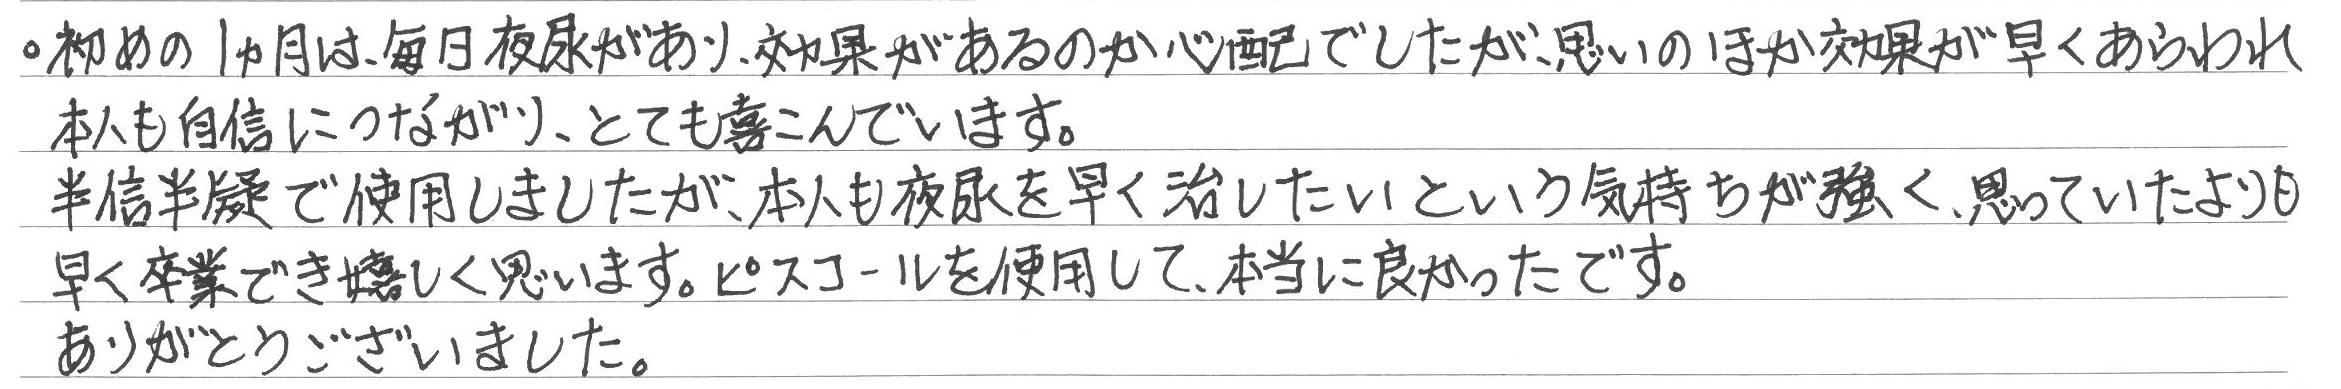 。初めの1ヵ月は、毎日夜尿があり、効果があるのか心配でしたが、思いのほか効果が早くあらわれ
本人も自信につながり、とても喜こんでいます。
半信半疑で使用しましたが、本人も夜尿を早く治したいという気持ちが強く、思っていたよりも
早く卒業でき嬉しく思います。ピスコールを使用して、本当に良かったです。
ありがとうございました。